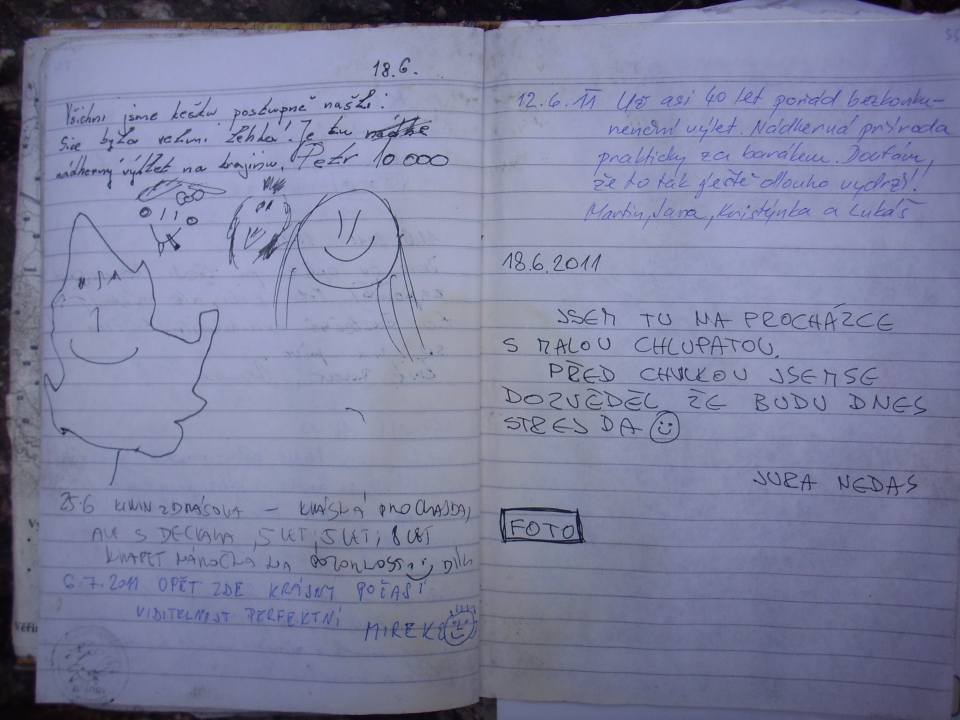 18.6.
Všichni jsme kešku postupně našli!
Sice byla velmi lehká! Je tu
nádherný výhled na krajinu. Petr 10 000
25.6 KININ Z DRÁSOVA – KRÁSNÁ PROCHÁZKA,
ALE S DĚCKAMA, 5 LET, 5 LET, 8 LET
KNAPET NÁROČNÁ NA POZORNOST
6.7.2011 OPĚT ZDE KRÁSNÝ POČASÍ
VIDITELNOST PERFEKTNÍ
MIREK
12.6.11 Už asi 40 let pořád bezkonku-
renční výlet. Nádherná příroda
prakticky za barákem. Doufám,
že to tak ještě dlouho vydrží!
Martin, Jana, Kristýnka a Lukáš
18.6.2011
JSEM TU NA PROCHÁZCE
S MALOU CHLUPATOU.
PŘED CHVILKOU JSEM SE
DOZVĚDĚL ŽE BUDU DNES
STREJDA
JURA NEDAS
FOTO